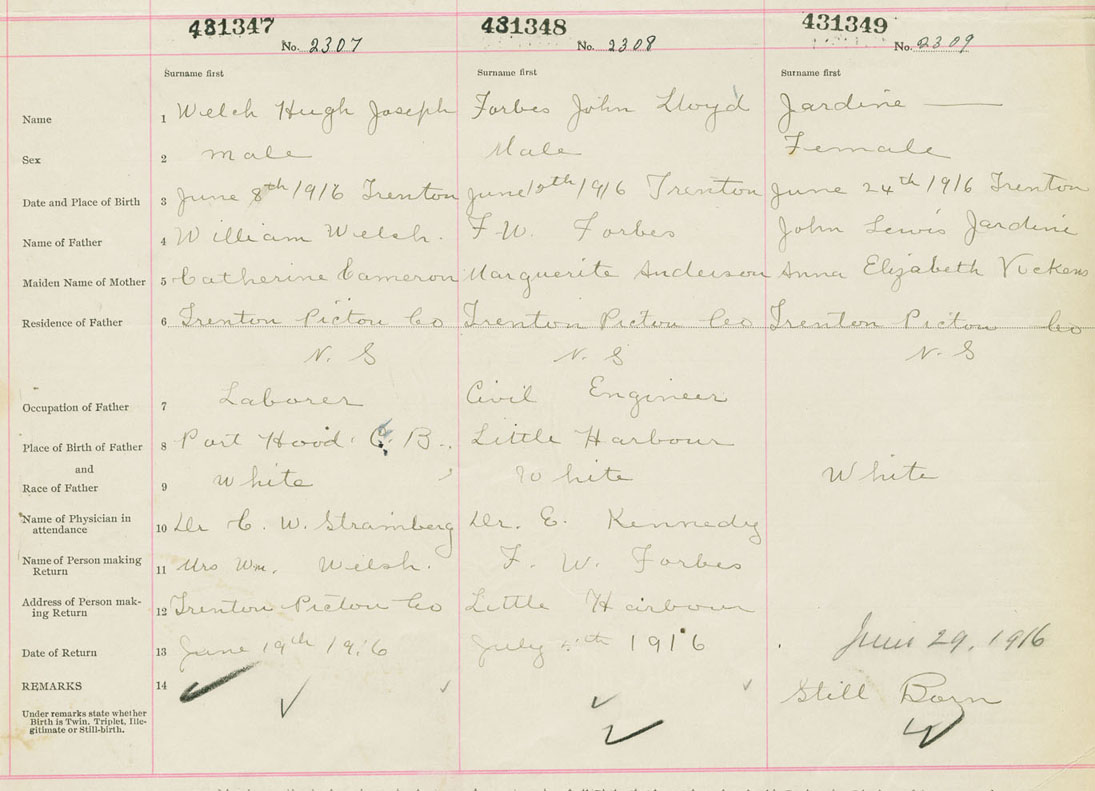 431347 431348 431349
No. 2307 No. 2308 No. 2309
Surname first Surname first Surname first
Name 1 Welch Hugh Joseph Forbes John Lloyd Jardine —
Sex 2 Male Male Female
Date and Place of Birth 3 June 8th 1916 Trenton June th 1916 Trenton June 24th 1916 Trenton
Name of Father 4 William Welsh. F. W. Forbes John Lewis Jardine
Maiden Name of Mother 5 Catherine Cameron Marguerite Anderson Anna Elizabeth Vickens
Residence of Father 6 Trenton Pictou Co Trenton Pictou Co Trenton Pictou Co
N. S N. S N. S
Occupation of Father 7 Laborer Civil Engineer
Place of Birth of Father 8 Port Hood C. B. Little Harbour
and
Race of Father 9 White White White
Name of Physician in
attendance 10 Dr C. W. Stramberg Dr. E. Kennedy
Name of Person making
Return 11 Mrs Wm. Welsh. F. W. Forbes
Address of Person mak-
ing Return 12 Trenton Pictou Co Little Harbour
Date of Return 13 June 19th 1916 July th 1916 June 29, 1916
REMARKS 14 Still Born
Under remarks state whether
Birth is Twin, Triplet, Ille-
gitimate or Still-birth.